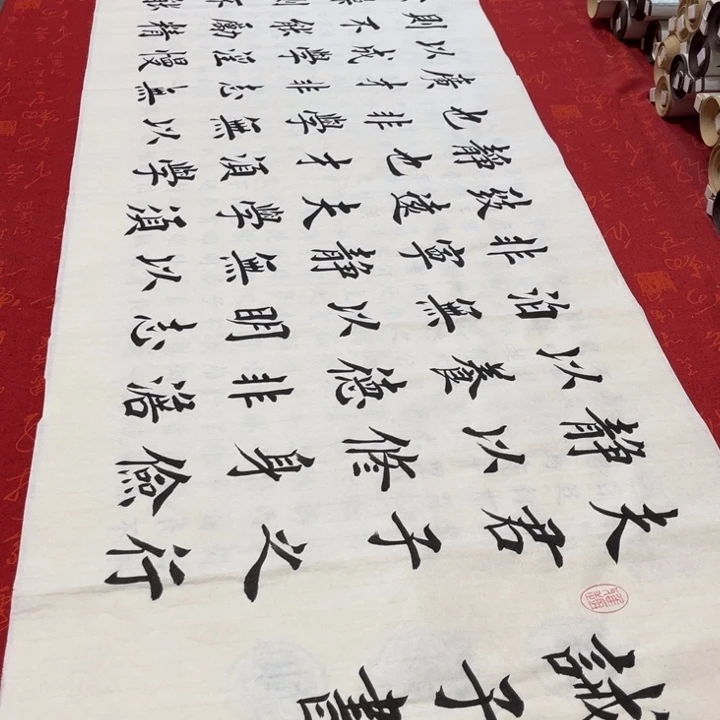 誡子書
夫君子之行
靜以修身儉
以養德非澹
泊無以明志
非寧靜無以
致遠夫學須
靜也才須學
也非學無以
廣才非志無
以成學淫慢
則不能勵精